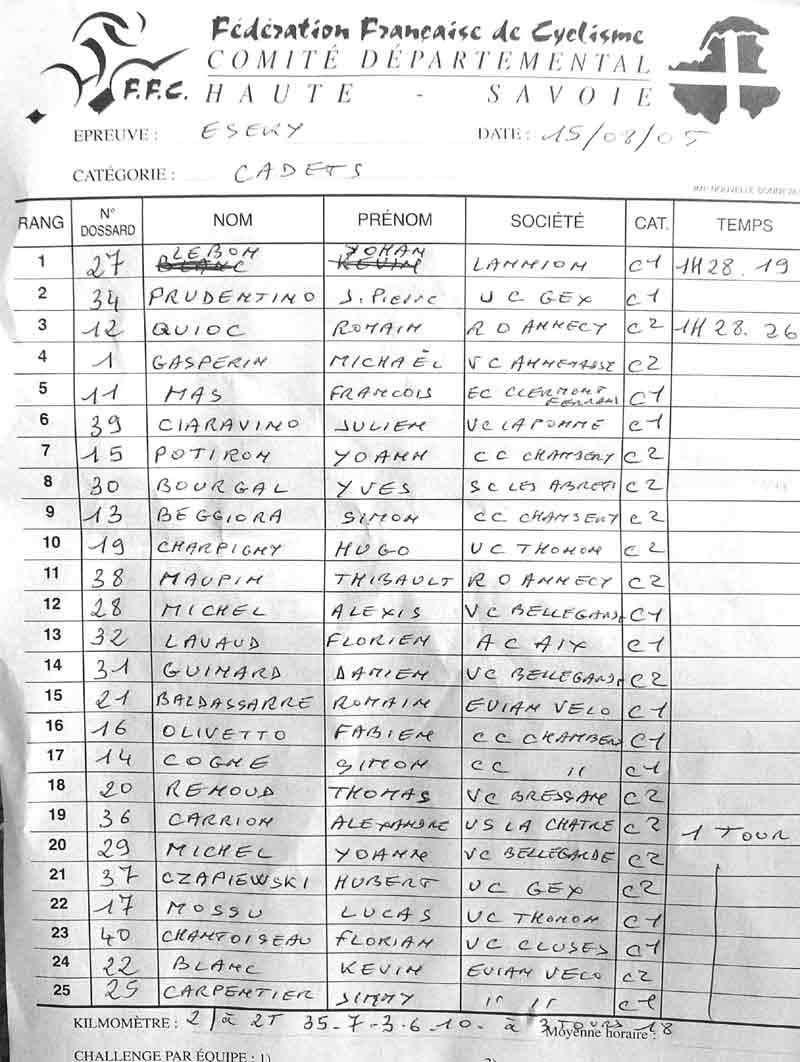 Fédération Française de Cyclisme
COMITÉ DÉPARTEMENTAL
F.F.C. HAUTE - SAVOIE
EPREUVE : ESERY DATE : 15/08/05
CATÉGORIE : CADETS
IMP. NOUVELLE BONNEVILLE
RANG N° DOSSARD NOM PRÉNOM SOCIÉTÉ CAT. TEMPS
LEBON YOHAN
1 27 BLANC KEVIN LANNION C1 1H28.19
2 34 PRUDENTINO J.Pierre UC GEX C1
3 12 QUIOC ROMAIN RO ANNECY C2 1H28.26
4 1 GASPERIN MICHAËL VC ANNEMASSE C2
5 11 MAS FRANCOIS EC CLERMONT FERRAND C1
6 39 CIARAVINO JULIEN VC LAPOMME C1
7 15 POTIRON YOANN CC CHAMBERY C2
8 30 BOURGAL YVES SC LES ABRETS C2
9 13 BEGGIORA SIMON CC CHAMBERY C2
10 19 CHARPIGNY HUGO UC THONON C2
11 38 MAUPIN THIBAULT RO ANNECY C2
12 28 MICHEL ALEXIS VC BELLEGARDE C1
13 32 LAVAUD FLORIEN AC AIX C1
14 31 GUIMARD DAMIEN VC BELLEGARDE C2
15 21 BALDASSARRE ROMAIN EVIAN VELO C1
16 16 OLIVETTO FABIEN CC CHAMBERY C1
17 14 COGNE SIMON CC " C1
18 20 RENOUD THOMAS VC BRESSAN C2
19 36 CARRION ALEXANDRE US LA CHATRE C2 1 TOUR
20 29 MICHEL YOANN VC BELLEGARDE C2
21 37 CZAPIEWSKI HUBERT UC GEX C2
22 17 MOSSU LUCAS UC THONON C1
23 40 CHANTOISEAU FLORIAN VC CLUSES C1
24 22 BLANC KEVIN EVIAN VELO C2
25 25 CARPENTIER JIMMY " " C1
KILMOMÈTRE : 2/ à 2T 35-7-3-6-10- à 3 TOURS 18
Moyenne horaire :
CHALLENGE PAR ÉQUIPE : 1)